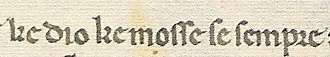 ke dio ke mosse se sempre